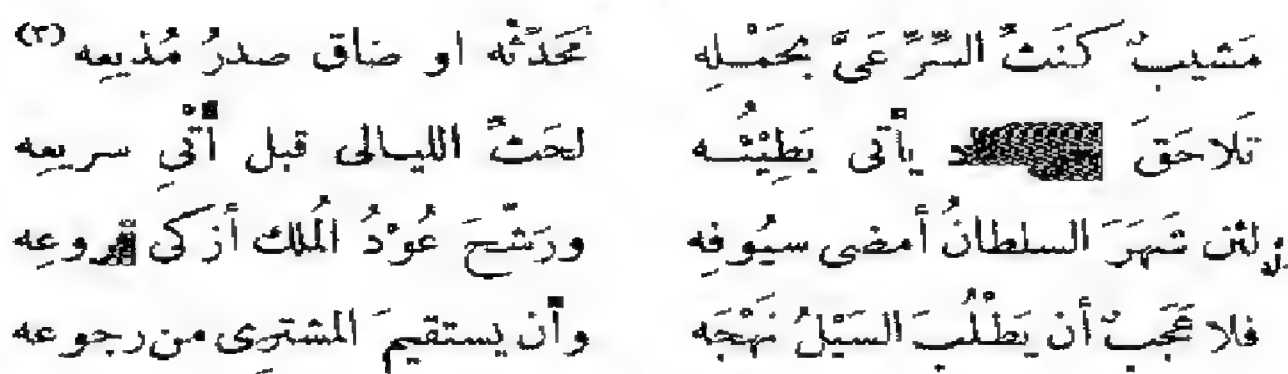 مَشيبٌ كَنَثِّ السِّرِّ عَىَّ بِحَمْلِهِ مُحَدِّثُه او ضاق صدرُ مُذيعِه (٣)
تَلاحَقَ يأتى بَطِيْئُــه لحَثِّ الليــالى قبل أَتْيِ سريعِه
ولئن شَهَرَ السلطانُ أمضى سيُوفِه ورَشَّحَ عُوْدُ المُلك أزكى فروعِه
فلا عَجَبٌ أن يَطْلُبَ السَيْلُ نَهْجَه وأن يستقيمَ المشترِى من رجوعه